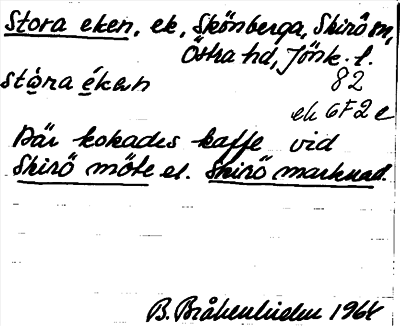 Stora eken, ek, Skönberga, Skirö sn,
Östra hd, Jönk. l.
stòra éken 82
ek 6F2e
Där kokades kaffe vid
Skirö möte el. Skirö marknad.
B. Bråkenhielm 1964